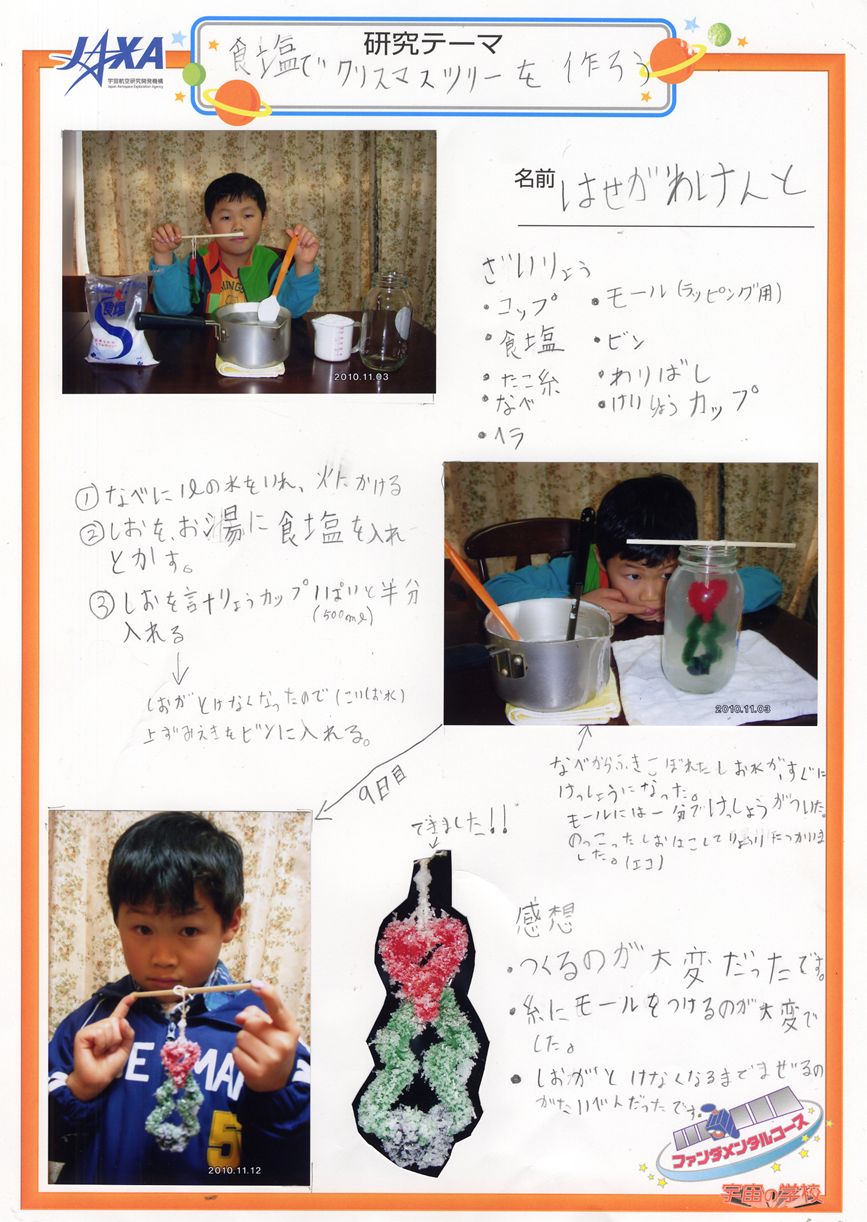 JAXA
宇宙航空研究開発機構
Japan Aerospace Exploration Agency
研究テーマ
食塩でクリスマスツリーを作ろう
名前 はせがわけんと
ざいりょう
・コップ
・食塩
・たこ糸
・なべ
・ヘラ
・モール(ラッピング用)
・ビン
・わりばし
・けいりょうカップ
食塩
2010.11.03
①なべに1ℓの水をいれ、火にかける
②しおを、お湯に食塩を入れ
とかす。
③しおを計りょうカップ1ぱいと半分
(500mℓ)
入れる
しおがとけなくなったので(こいしお水)
上ずみえきをビンに入れる。
2010.11.03
9日目
なべからふきこぼれたしお水が、すぐに
けっしょうになった。
モールには一分でけっしょうがついた。
のっこったしおはこしてりょうりにつかいま
した。(エコ)
できました!!
2010.11.12
感想
・つくるのが大変だったです。
・糸にモールをつけるのが大変で
した。
・しおがとけなくなるまでまぜるの
がたいへんだったです。
ファンダメンタルコース
宇宙の学校